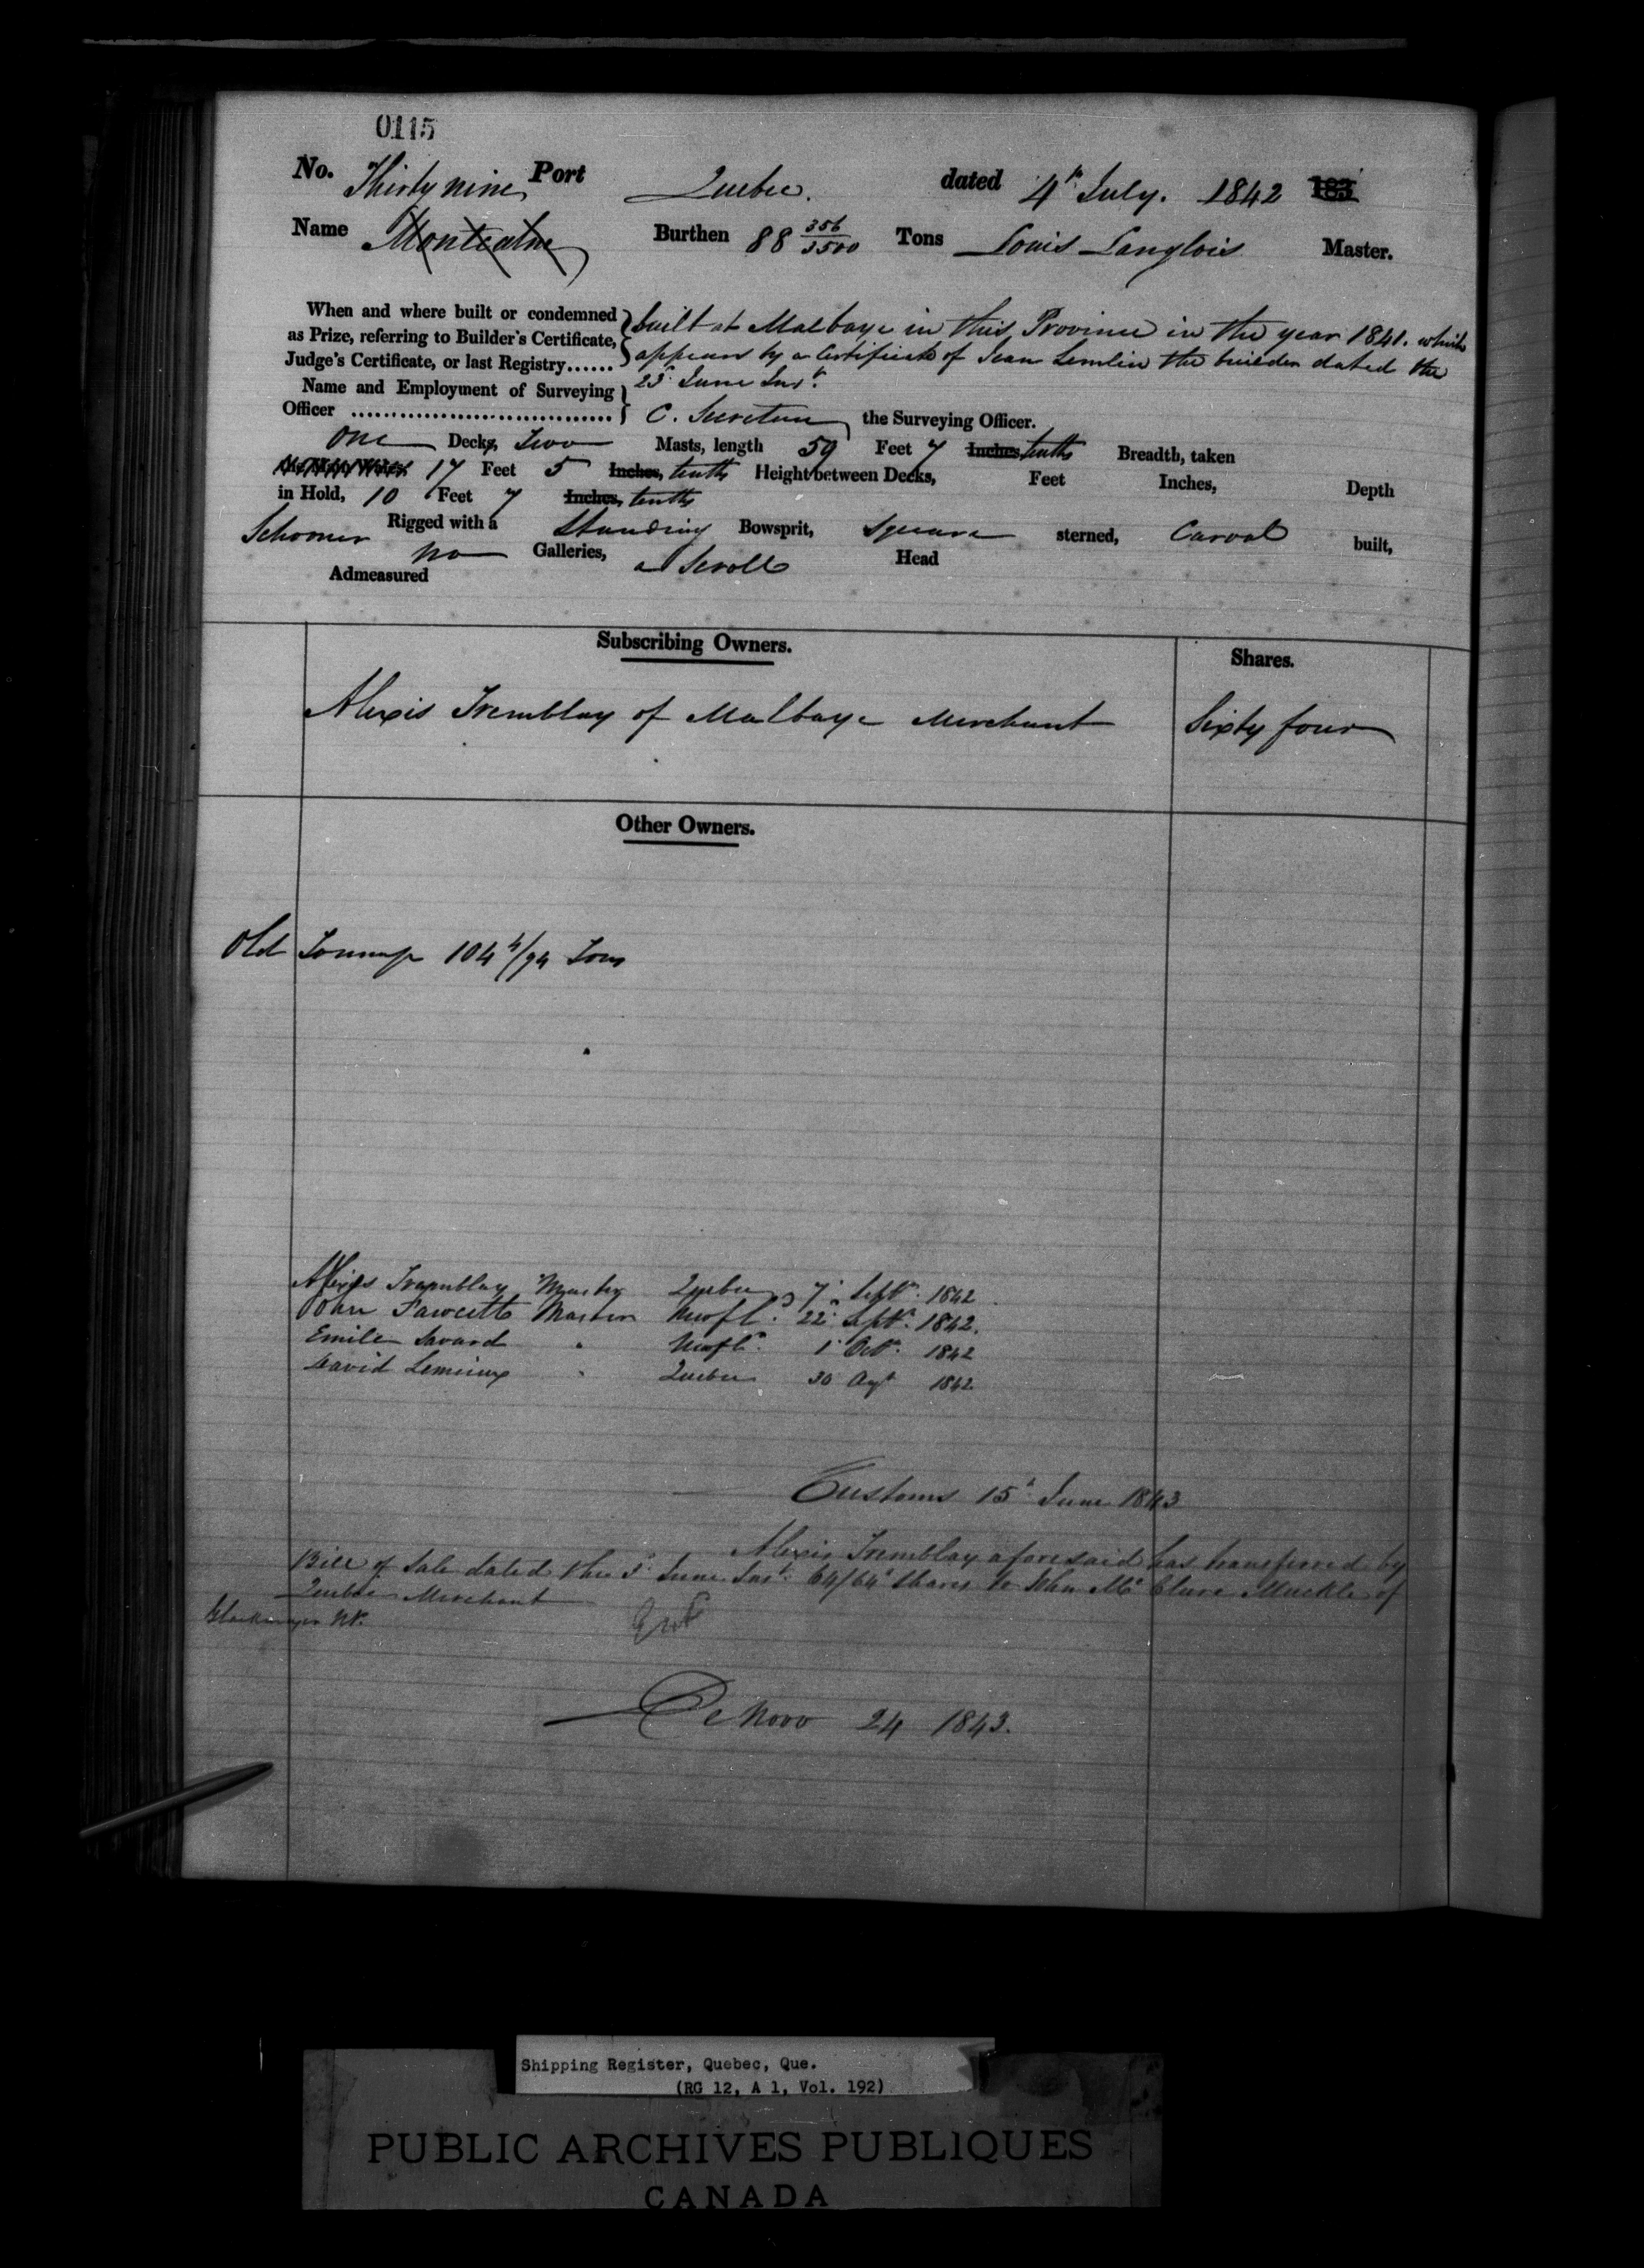 0115
No. Thirty nine Port Quebec. dated 4th July. 1842 183
Name Montcalm Burthen 88 356/3500 Tons Louis Langlois Master.
When and where built or condemned
as Prize, referring to Builder's Certificate,
Judge's Certificate, or last Registry......
built at Malbaye in this Province in the year 1841. which
appears by a Certificate of Jean Lemlin the builder dated the
23d June Inst.
Name and Employment of Surveying
Officer ................................ C. Secretan the Surveying Officer.
One Decks, Two Masts, length 59 Feet 7 Inches, tenths Breadth, taken
17 Feet 5 Inches, tenths Height between Decks, Feet Inches, Depth
in Hold, 10 Feet 7 Inches, tenths
Schooner Rigged with a Standing Bowsprit, Square sterned, Carvel built,
no Galleries, a Scroll Head
Admeasured
Subscribing Owners. Shares.
Alexis Tremblay of Malbaye Merchant Sixty four
Other Owners.
Old Tonnage 104 4/94 Tons
Alexis Tremblay Master Quebec 7 Sept. 1842
John Fawcett Master Newfd. 22d Sept. 1842.
Emile Savard " Newfd. 1 Oct. 1842
David Lemieux " Quebec 30 Augt 1842
Customs 15th June 1843
Alexis Tremblay aforesaid has transferred by
Bill of Sale dated the June Inst. 64/64th Shares to John McClure Muckle of
Quebec Merchant
De Novo 24 1843.
Shipping Register, Quebec, Que.
(RG 12, A 1, Vol. 192)
PUBLIC ARCHIVES PUBLIQUES
CANADA